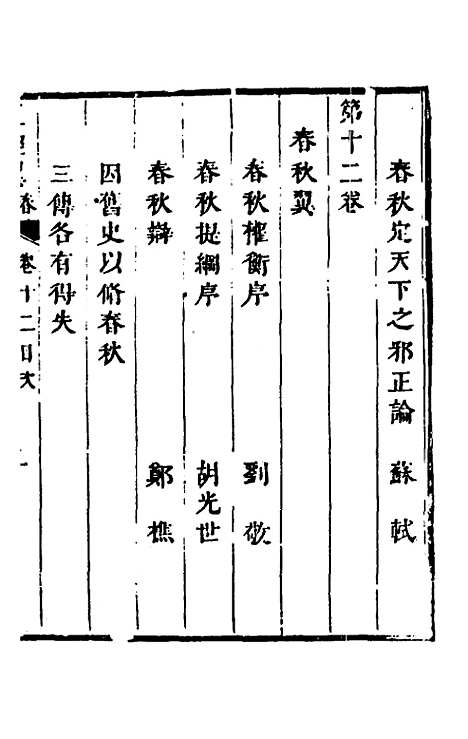 春秋定天下之邪正論　蘇軾
第十二卷
春秋翼
春秋權衡序　劉敞
春秋提綱序　胡光世
春秋辯　鄭樵
因舊史以脩春秋
三傳各有得失
卷十二目次